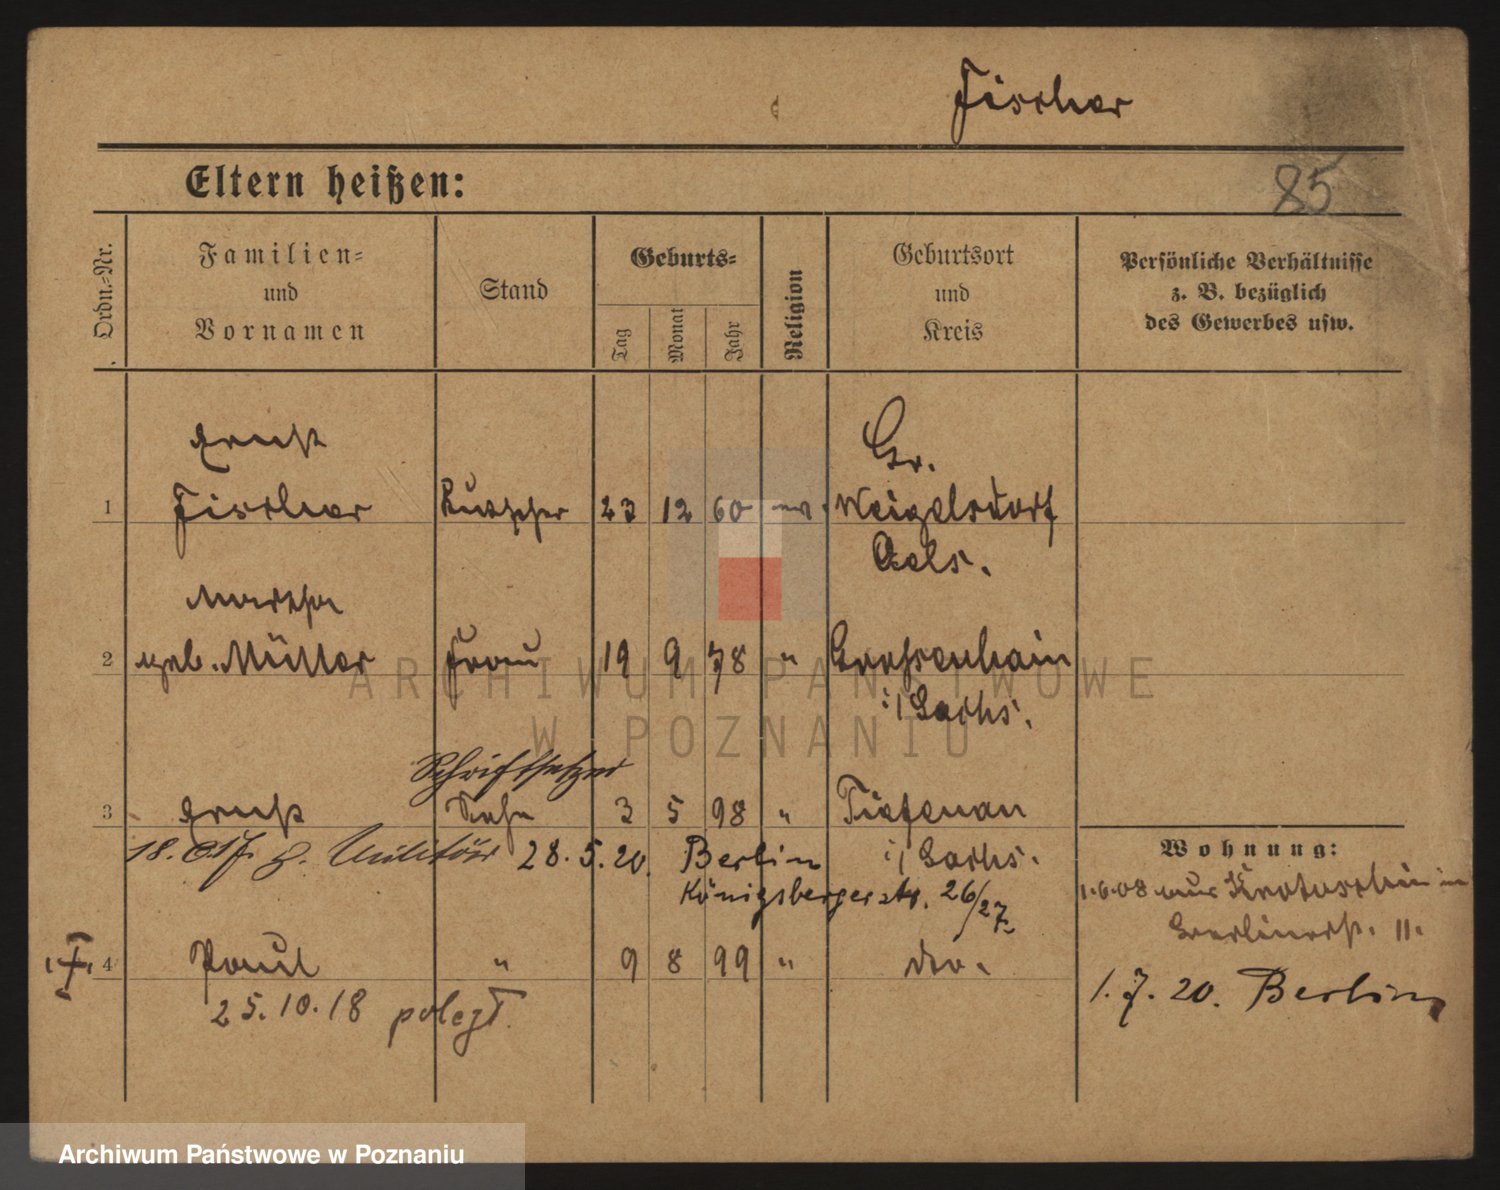 Fischer
85
Eltern heißen:
Ordn.-Nr.
Familien-
und
Vornamen
Stand
Geburts-
Tag
Monat
Jahr
Religion
Geburtsort
und
Kreis
Persönliche Verhältnisse
z. B. bezüglich
des Gewerbes usw.
Ernst
Gr.
1 Fischer Kutscher 23 12 60 ev. Weigelsdorf
Oels.
Martha
2 geb. Müller Frau 19 9 78 " Grossenhain
i/Sachs.
Schriftsetzer
3 Ernst Sohn 3 5 98 " Tiefenau
18. 6. 17. z. Militär 28. 5. 20. Berlin i/Sachs.
Königsbergerstr. 26/27.
Wohnung:
1.6.08 aus Krotoschin in
Berlinerstr. 11.
1. 7. 20. Berlin
4 Paul " 9 8 99 " do.
25. 10. 18 poległ.
ARCHIWUM PAŃSTWOWE
W POZNANIU
Archiwum Państwowe w Poznaniu